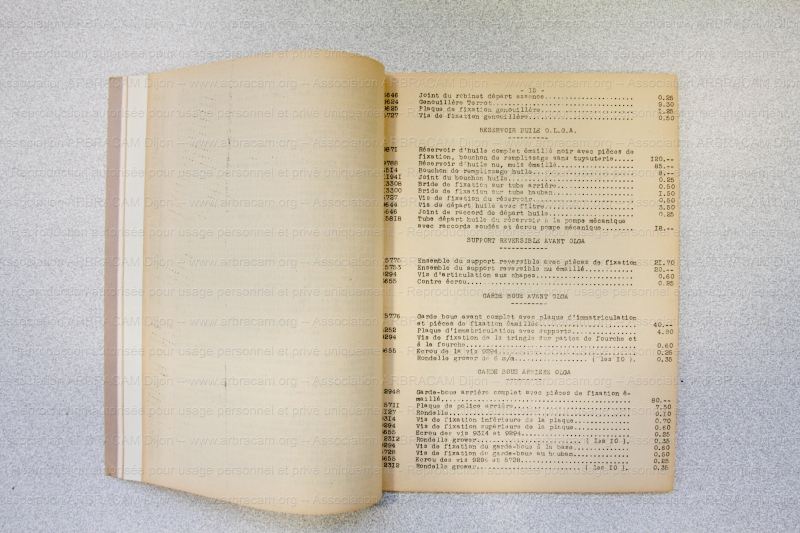 - 15 -
6646 Joint du robinet départ essence 0.25
9624 Genouillère Terrot 9.30
9625 Plaque de fixation genouillère 1.25
5727 Vis de fixation genouillère 0.50
RESERVOIR HUILE O.L.G.A.
9871 Réservoir d'huile complet émaillé noir avec pièces de
fixation, bouchon de remplissage sans tuyauterie 120.--
Réservoir d'huile nu, mais émaillé 85.--
Bouchon de remplissage huile 8.--
Joint du bouchon huile 0.25
Bride de fixation sur tube arrière 0.50
Bride de fixation sur tube hauban 1.50
Vis de fixation du réservoir 0.50
Vis de départ huile avec filtre 3.50
6646 Joint de raccord de départ huile 0.25
5818 Tube départ huile du réservoir à la pompe mécanique
avec raccords soudés et écrou pompe mécanique 18.--
SUPPORT REVERSIBLE AVANT OLGA
5775 Ensemble du support reversible avec pièces de fixation 21.70
5753 Ensemble du support reversible nu émaillé 20.--
9294 Vis d'articulation aux chapes 0.60
6655 Contre écrou 0.25
GARDE BOUE AVANT OLGA
5776 Garde boue avant complet avec plaque d'immatriculation
et pièces de fixation émaillés 40.--
Plaque d'immatriculation avec supports 4.90
9294 Vis de fixation de la tringle sur pattes de fourche et
à la fourche 0.60
6655 Ecrou de la vis 9294 0.25
Rondelle grower de 6 m/m ( les 10 ). 0.35
GARDE BOUE ARRIERE OLGA
2948 Garde-boue arrière complet avec pièces de fixation é-
maillé 80.--
5711 Plaque de police arrière 7.50
Rondelle 0.10
9314 Vis de fixation inférieure de la plaque 0.70
9294 Vis de fixation supérieure de la plaque 0.60
6655 Ecrou des vis 9314 et 9294 0.25
2312 Rondelle grower ( les 10 ). 0.35
9294 Vis de fixation du garde-boue à la base 0.60
5728 Vis de fixation du garde-boue au hauban 0.50
6655 Ecrou des vis 9294 et 5728 0.25
2312 Rondelle grower ( les 10 ). 0.35